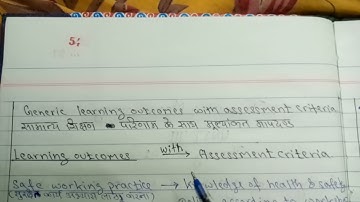 5;
Generic learning outcomes with assessment criteria
सामान्य शिक्षण परिणाम के साथ मूल्यांकन मापदंड
Learning outcomes with → Assessment criteria
Safe working practice → Knowledge of health & safety
according to